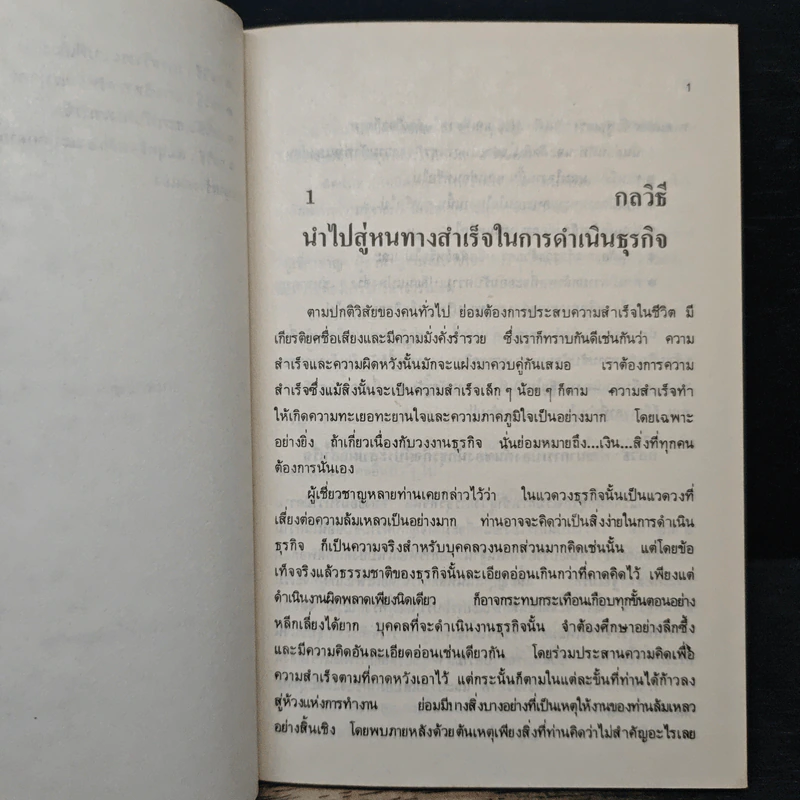 1
1 กลวิธี
นำไปสู่หนทางสำเร็จในการดำเนินธุรกิจ
ตามปกติวิสัยของคนทั่วไป ย่อมต้องการประสบความสำเร็จในชีวิต มี
เกียรติยศชื่อเสียงและมีความมั่งคั่งร่ำรวย ซึ่งเราก็ทราบกันดีเช่นกันว่า ความ
สำเร็จและความผิดหวังนั้นมักจะแฝงมาควบคู่กันเสมอ เราต้องการความ
สำเร็จซึ่งแม้สิ่งนั้นจะเป็นความสำเร็จเล็ก ๆ น้อย ๆ ก็ตาม ความสำเร็จทำ
ให้เกิดความทะเยอทะยานใจและความภาคภูมิใจเป็นอย่างมาก โดยเฉพาะ
อย่างยิ่ง ถ้าเกี่ยวเนื่องกับวงงานธุรกิจ นั่นย่อมหมายถึง...เงิน...สิ่งที่ทุกคน
ต้องการนั่นเอง
ผู้เชี่ยวชาญหลายท่านเคยกล่าวไว้ว่า ในแวดวงธุรกิจนั้นเป็นแวดวงที่
เสี่ยงต่อความล้มเหลวเป็นอย่างมาก ท่านอาจจะคิดว่าเป็นสิ่งง่ายในการดำเนิน
ธุรกิจ ก็เป็นความจริงสำหรับบุคคลวงนอกส่วนมากคิดเช่นนั้น แต่โดยข้อ
เท็จจริงแล้วธรรมชาติของธุรกิจนั้นละเอียดอ่อนเกินกว่าที่คาดคิดไว้ เพียงแต่
ดำเนินงานผิดพลาดเพียงนิดเดียว ก็อาจกระทบกระเทือนเกือบทุกขั้นตอนอย่าง
หลีกเลี่ยงได้ยาก บุคคลที่จะดำเนินงานธุรกิจนั้น จำต้องศึกษาอย่างลึกซึ้ง
และมีความคิดอันละเอียดอ่อนเช่นเดียวกัน โดยร่วมประสานความคิดเพื่อ
ความสำเร็จตามที่คาดหวังเอาไว้ แต่กระนั้นก็ตามในแต่ละขั้นที่ท่านได้ก้าวลง
สู่ห้วงแห่งการทำงาน ย่อมมีบางสิ่งบางอย่างที่เป็นเหตุให้งานของท่านล้มเหลว
อย่างสิ้นเชิง โดยพบภายหลังด้วยต้นเหตุเพียงสิ่งที่ท่านคิดว่าไม่สำคัญอะไรเลย